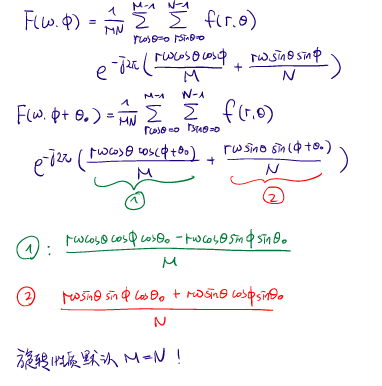 F(ω.ϕ) = 1/MN Σ_{rcosθ=0}^{M-1} Σ_{rsinθ=0}^{N-1} f(r,θ)
e^{-j2π(rωcosθcosϕ/M + rωsinθsinϕ/N)}
F(ω.ϕ+θ₀) = 1/MN Σ_{rcosθ=0}^{M-1} Σ_{rsinθ=0}^{N-1} f(r,θ)
e^{-j2π(rωcosθcos(ϕ+θ₀)/M + rωsinθsin(ϕ+θ₀)/N)}
① ②
①: rωcosθcosϕcosθ₀ - rωcosθsinϕsinθ₀ / M
② rωsinθsinϕcosθ₀ + rωsinθcosϕsinθ₀ / N
旋转性质默认 M=N !